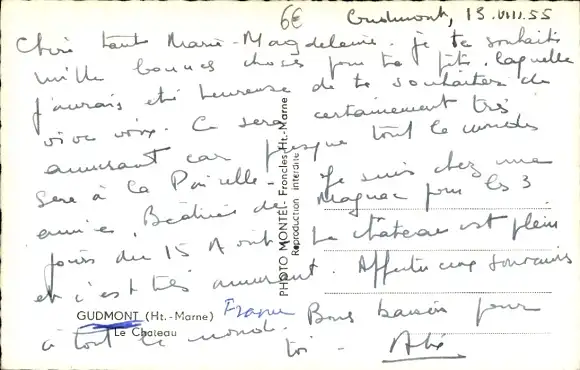 6€
Gudmont, 13.VIII.55
Chère tante Marie-Magdeleine. je te souhaite
mille bonnes choses pour ta fête, laquelle
j'aurais été heureuse de te souhaiter de
vive voix. Ce sera certainement très
amusant car presque tout le monde
sera à la
Je suis chez une
amie, Béatrice de Magnac pour les 3
jours du 15 Août. Le château est plein
et c'est très amusant. Affectueux souvenirs
à tout le monde. Bons baisers pour
toi -
GUDMONT (Ht.-Marne)
Le Chateau
France
PHOTO MONTEL - Froncles Ht.-Marne
Reproduction interdite